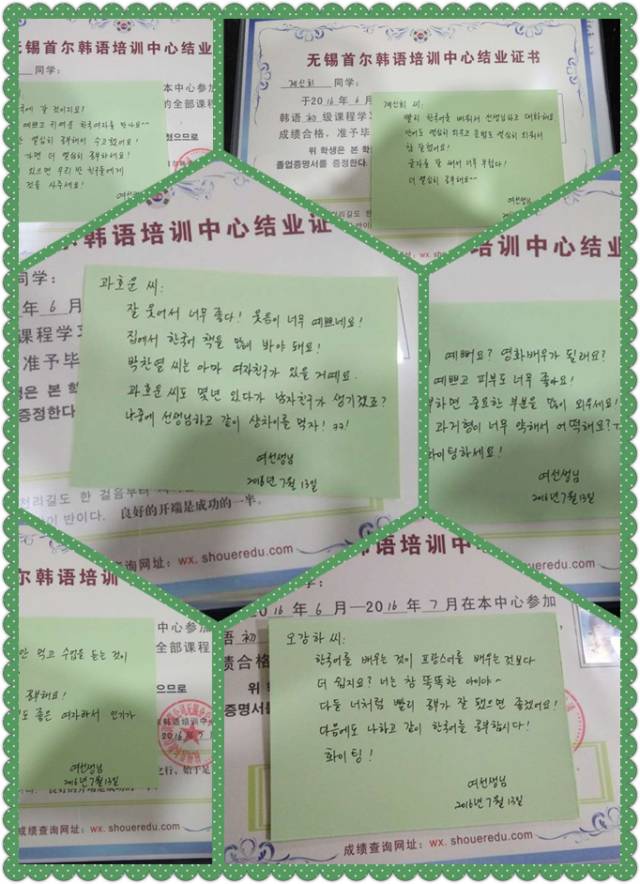 无锡首尔韩语培训中心结业
同学:
本中心参加
的全部课程
에 갈 것이지요?
예쁘고 귀여운 한국여자를 만나요~~
열심히 공부해서 수고했어요!
가면 더 열심히 공부하세요!
있으면 우리 반 친구들에게
것을 사주세요!
여선생
무锡首尔韩语培训中心结业证书
계신희 同学:
于2016年6月
韩语初级课程学习
成绩合格,准予毕
위 학생은 본 학
졸업증명서를 증정한다.
계신희 씨:
빨리 한국어를 배워서 선생님하고 대화해요
단어도 열심히 외우고 문법도 열심히 외워서
참 잘했어요!
글자를 잘 써서 너무 부럽다!
더 열심히 공부해요~~
여선생님
尔韩语培训中心结业证
同学:
年6月
课程学习
准予毕
은 본 학
증정한다
곽호운 씨:
잘 웃어서 너무 좋다! 웃음이 너무 예쁘네요!
집에서 한국어 책을 많이 봐야 돼요!
박찬열 씨는 아마 여자친구가 있을 거예요.
곽호운 씨도 몇년 있다가 남자친구가 생기겠죠?
나중에 선생님하고 같이 상차이를 먹자! ㅋㅋ!
여선생님
2016년 7월 13일
천리길도 한 걸음부터
이 반이다. 良好的开端是成功的一半。
查询网址: wx. shoueredu.com
语培训中心结业
예뻐요? 영화배우가 될래요?
예쁘고 피부도 너무 좋아요!
하면 중요한 부분을 많이 외우세요!
과거형이 너무 약해서 어떡해요?
화이팅하세요!
여선생님
2016년 7월 13일
尔韩语培训
中心参加
全部课程
만 먹고 수업을 듣는 것이
공부해요!
도 좋은 여자라서 인기가
여선생님
2016년 7월 13일
으므로
2016年7月
之行、始于足
良好的开端是成功的一半。
成绩查询网址: wx. shoueredu.com
韩语培训中心
2016年6月—2016年7月在本中心参加
语初
绩合格
위 학
证明书를 증
오강하 씨:
한국어를 배우는 것이 프랑스어를 배우는 것보다
더 쉽지요? 너는 참 똑똑한 아이야~
다들 너처럼 빨리 공부가 잘 됐으면 좋겠어요!
다음에도 나하고 같이 한국어를 공부합시다!
화이팅!
여선생님
2016년 7월 13일
成绩查询网址: wx. shoueredu.com